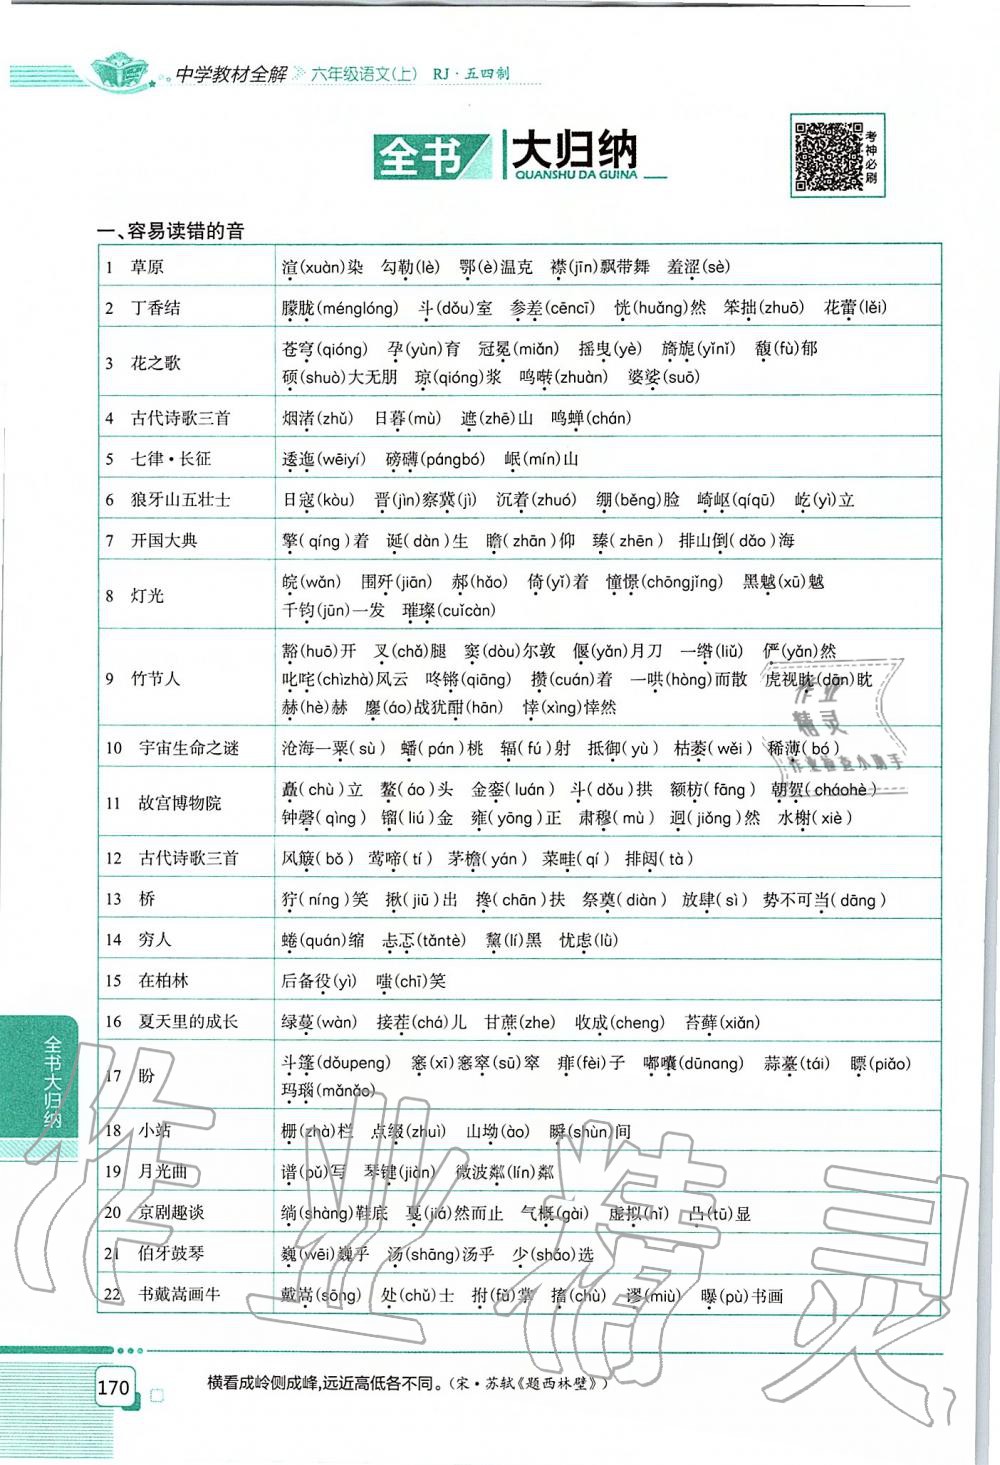 中学教材全解 六年级语文(上) RJ·五四制
全书 大归纳
QUANSHU DA GUINA
考神必刷
一、容易读错的音
1 草原 渲(xuàn)染 勾勒(lè) 鄂(è)温克 襟(jīn)飘带舞 羞涩(sè)
2 丁香结 朦胧(ménglóng) 斗(dǒu)室 参差(cēncī) 恍(huǎng)然 笨拙(zhuō) 花蕾(lěi)
3 花之歌 苍穹(qióng) 孕(yùn)育 冠冕(miǎn) 摇曳(yè) 旖旎(yǐnǐ) 馥(fù)郁
硕(shuò)大无朋 琼(qióng)浆 鸣啭(zhuàn) 婆娑(suō)
4 古代诗歌三首 烟渚(zhǔ) 日暮(mù) 遮(zhē)山 鸣蝉(chán)
5 七律·长征 逶迤(wēiyí) 磅礴(pángbó) 岷(mín)山
6 狼牙山五壮士 日寇(kòu) 晋(jìn)察冀(jì) 沉着(zhuó) 绷(běng)脸 崎岖(qíqū) 屹(yì)立
7 开国大典 擎(qíng)着 诞(dàn)生 瞻(zhān)仰 臻(zhēn) 排山倒(dǎo)海
8 灯光 皖(wǎn) 围歼(jiān) 郝(hǎo) 倚(yǐ)着 憧憬(chōngjǐng) 黑魆(xū)魆
千钧(jūn)一发 璀璨(cuǐcàn)
9 竹节人 豁(huō)开 叉(chǎ)腿 窦(dòu)尔敦 偃(yǎn)月刀 一绺(liǔ) 俨(yǎn)然
叱咤(chìzhà)风云 咚锵(qiāng) 攒(cuán)着 一哄(hòng)而散 虎视眈(dān)眈
赫(hè)赫 鏖(áo)战犹酣(hān) 悻(xìng)悻然
10 宇宙生命之谜 沧海一粟(sù) 蟠(pán)桃 辐(fú)射 抵御(yù) 枯萎(wěi) 稀薄(bó)
11 故宫博物院 矗(chù)立 鳌(áo)头 金銮(luán) 斗(dǒu)拱 额枋(fāng) 朝贺(cháohè)
钟磬(qìng) 镏(liú)金 雍(yōng)正 肃穆(mù) 迥(jiǒng)然 水榭(xiè)
12 古代诗歌三首 风簸(bǒ) 莺啼(tí) 茅檐(yán) 菜畦(qí) 排闼(tà)
13 桥 狞(níng)笑 揪(jiū)出 搀(chān)扶 祭奠(diàn) 放肆(sì) 势不可当(dāng)
14 穷人 蜷(quán)缩 忐忑(tǎntè) 黧(lí)黑 忧虑(lǜ)
15 在柏林 后备役(yì) 嗤(chī)笑
16 夏天里的成长 绿蔓(wàn) 接茬(chá)儿 甘蔗(zhe) 收成(cheng) 苔藓(xiǎn)
17 盼 斗篷(dǒupeng) 窸(xī)窸窣(sū)窣 痱(fèi)子 嘟囔(dūnang) 蒜薹(tái) 瞟(piǎo)
玛瑙(mǎnǎo)
18 小站 栅(zhà)栏 点缀(zhuì) 山坳(ào) 瞬(shùn)间
19 月光曲 谱(pǔ)写 琴键(jiàn) 微波粼(lín)粼
20 京剧趣谈 绱(shàng)鞋底 戛(jiá)然而止 气概(gài) 虚拟(nǐ) 凸(tū)显
21 伯牙鼓琴 巍(wēi)巍乎 汤(shāng)汤乎 少(shǎo)选
22 书戴嵩画牛 戴嵩(sōng) 处(chǔ)士 拊(fǔ)掌 搐(chù) 谬(miù) 曝(pù)书画
全书大归纳
170 横看成岭侧成峰,远近高低各不同。(宋·苏轼《题西林壁》)
作业精灵
作业
精灵
作业检查小助手